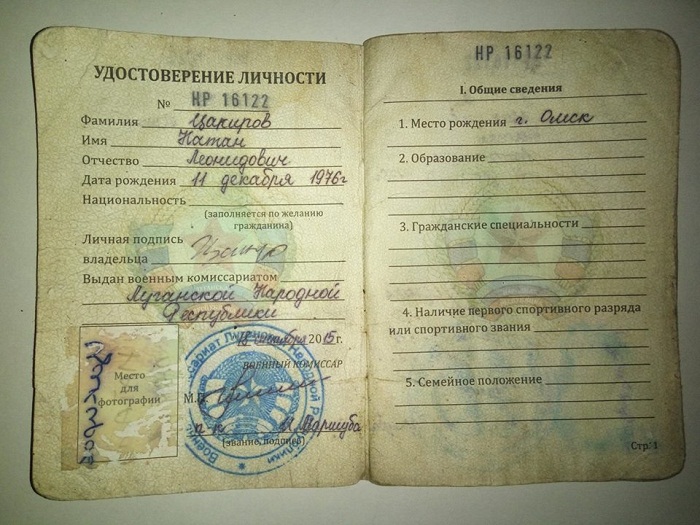 УДОСТОВЕРЕНИЕ ЛИЧНОСТИ
№ НР 16122
Фамилия Цакиров
Имя Натан
Отчество Леонидович
Дата рождения 11 декабря 1976г
Национальность
(заполняется по желанию
гражданина)
Личная подпись
владельца
Выдан военным комиссариатом
Луганской Народной
Республики
2015 г.
ВОЕННЫЙ КОМИССАР
Место
для
фотографии
М.П.
п-к
(звание, подпись)
НР 16122
I. Общие сведения
1. Место рождения г. Омск
2. Образование
3. Гражданские специальности
4. Наличие первого спортивного разряда
или спортивного звания
5. Семейное положение
Стр. 1